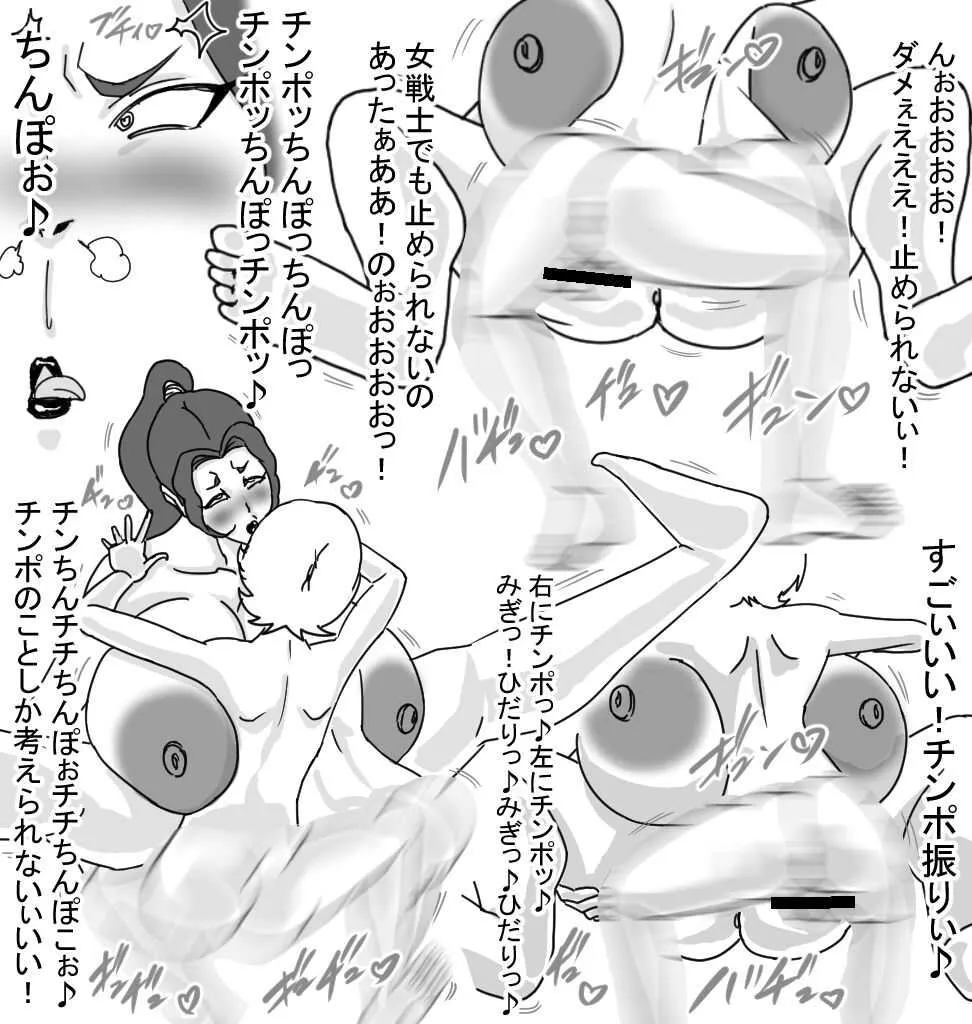 んぉおおおお！
ダメぇえええ！止められないぃ！
女戦士でも止められないの
あったぁああ！のぉおおおおっ！
チンポッちんぽっちんぽっ
チンポッちんぽっチンポッ♪
ブチィ♡
ちんぽぉ♪
ギューン♡
バギュ♡
ギュ♡
ギューン♡
すごいいい！チンポ振りぃ♪
右にチンポっ♪左にチンポッ♪
みぎっ！ひだりっ♪みぎっ♪ひだりっ♪
ギュン♡
バギュ♡
チンちんチチちんぽぉチチちんぽこぉ♪
チンポのことしか考えられないぃいい！